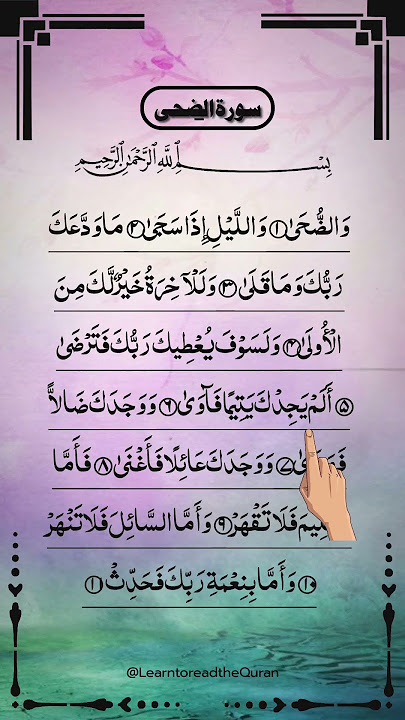 سورة الضحى
بِسْمِ ٱللَّهِ ٱلرَّحْمَٰنِ ٱلرَّحِيمِ
وَالضُّحَىٰ ١ وَاللَّيْلِ إِذَا سَجَىٰ ٢ مَا وَدَّعَكَ
رَبُّكَ وَمَا قَلَىٰ ٣ وَلَلْآخِرَةُ خَيْرٌ لَّكَ مِنَ
الْأُولَىٰ ٤ وَلَسَوْفَ يُعْطِيكَ رَبُّكَ فَتَرْضَىٰ
٥ أَلَمْ يَجِدْكَ يَتِيمًا فَآوَىٰ ٦ وَوَجَدَكَ ضَالًّا
٧ وَوَجَدَكَ عَائِلًا فَأَغْنَىٰ ٨ فَأَمَّا
فَلَا تَقْهَرْ ٩ وَأَمَّا السَّائِلَ فَلَا تَنْهَرْ
١٠ وَأَمَّا بِنِعْمَةِ رَبِّكَ فَحَدِّثْ ١١
@LearntoreadtheQuran